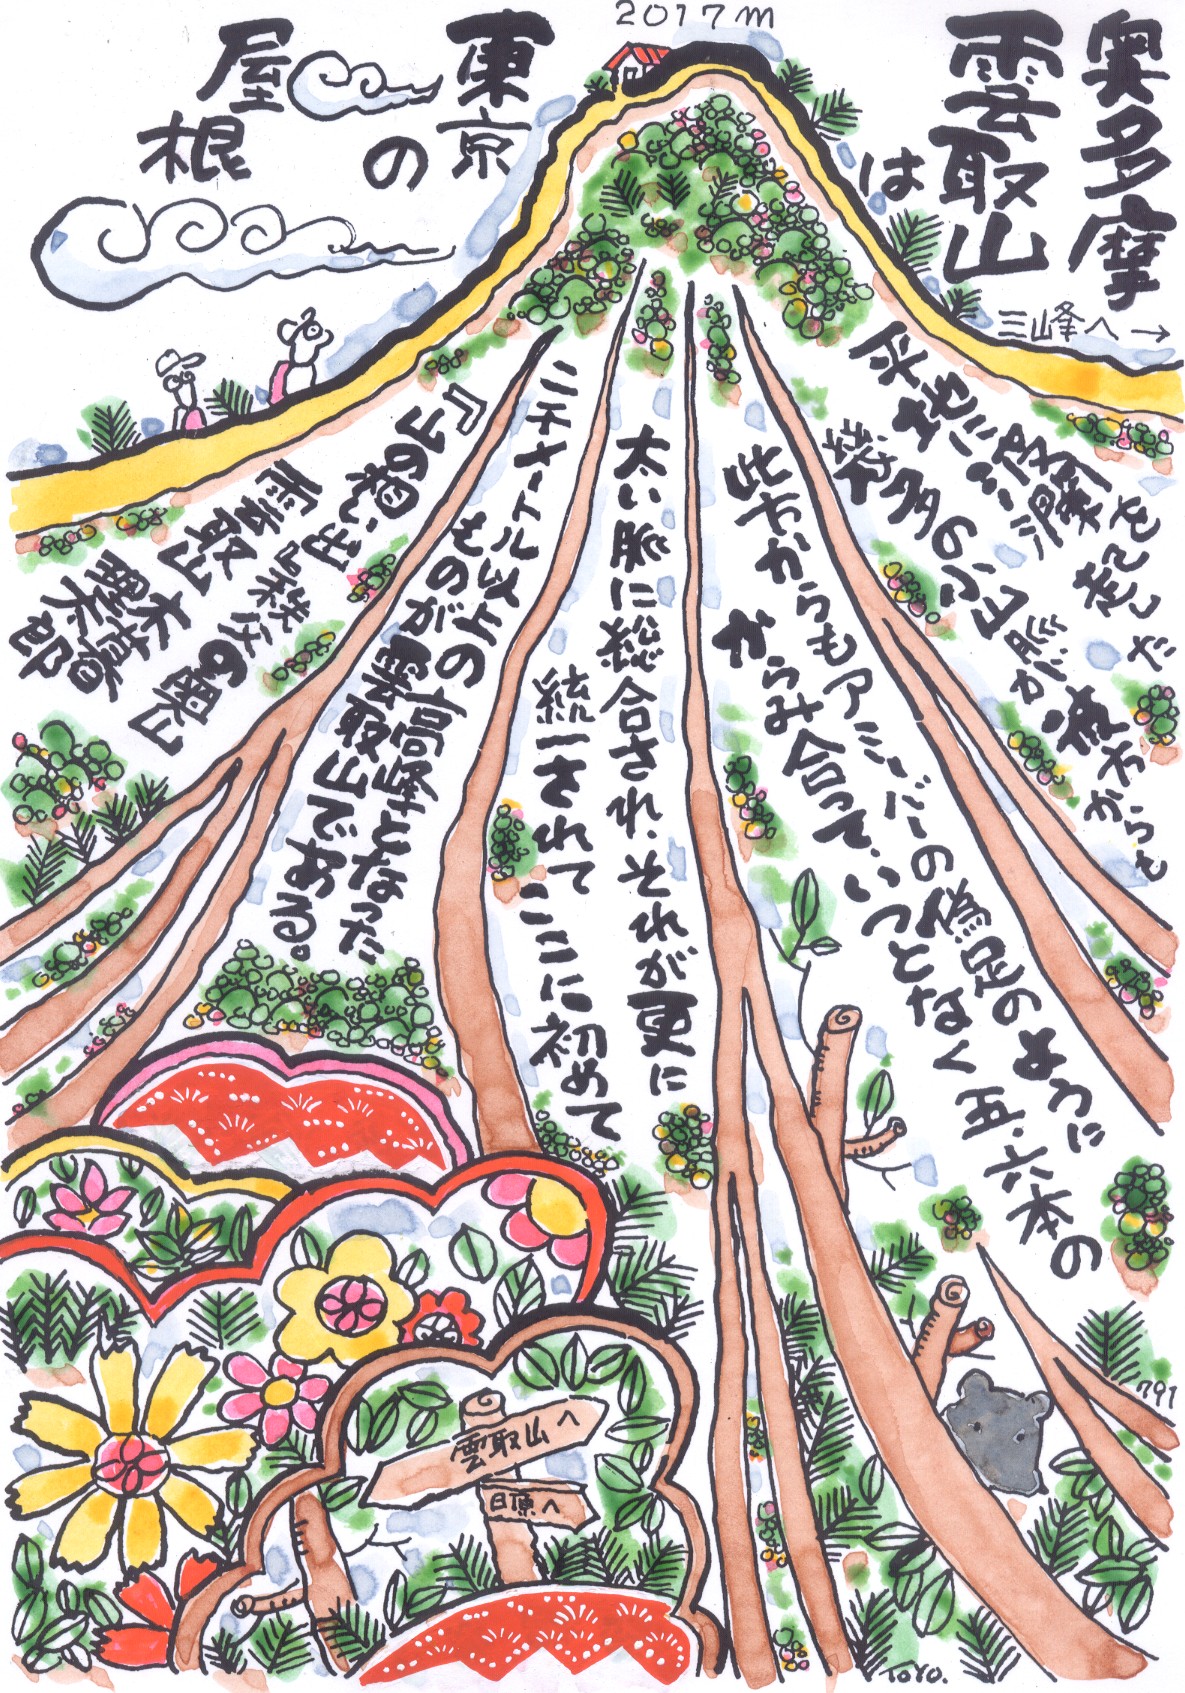 2017m
奥多摩
雲取山
は
東京
の
屋根
三峰へ→
平野に波瀾
幾多の小山脈が
彼方からも
此方からもアミーバーの偽足のように
からみ合って、いつとなく五、六本の
太い脈に総合され、それが更に
統一されてここに初めて
二千メートル以上の
ものが雲取山
高峰となった
である。
『山の想い出』
雲取山
木暮
理太郎
雲取山へ
日原へ
791
TOYO.